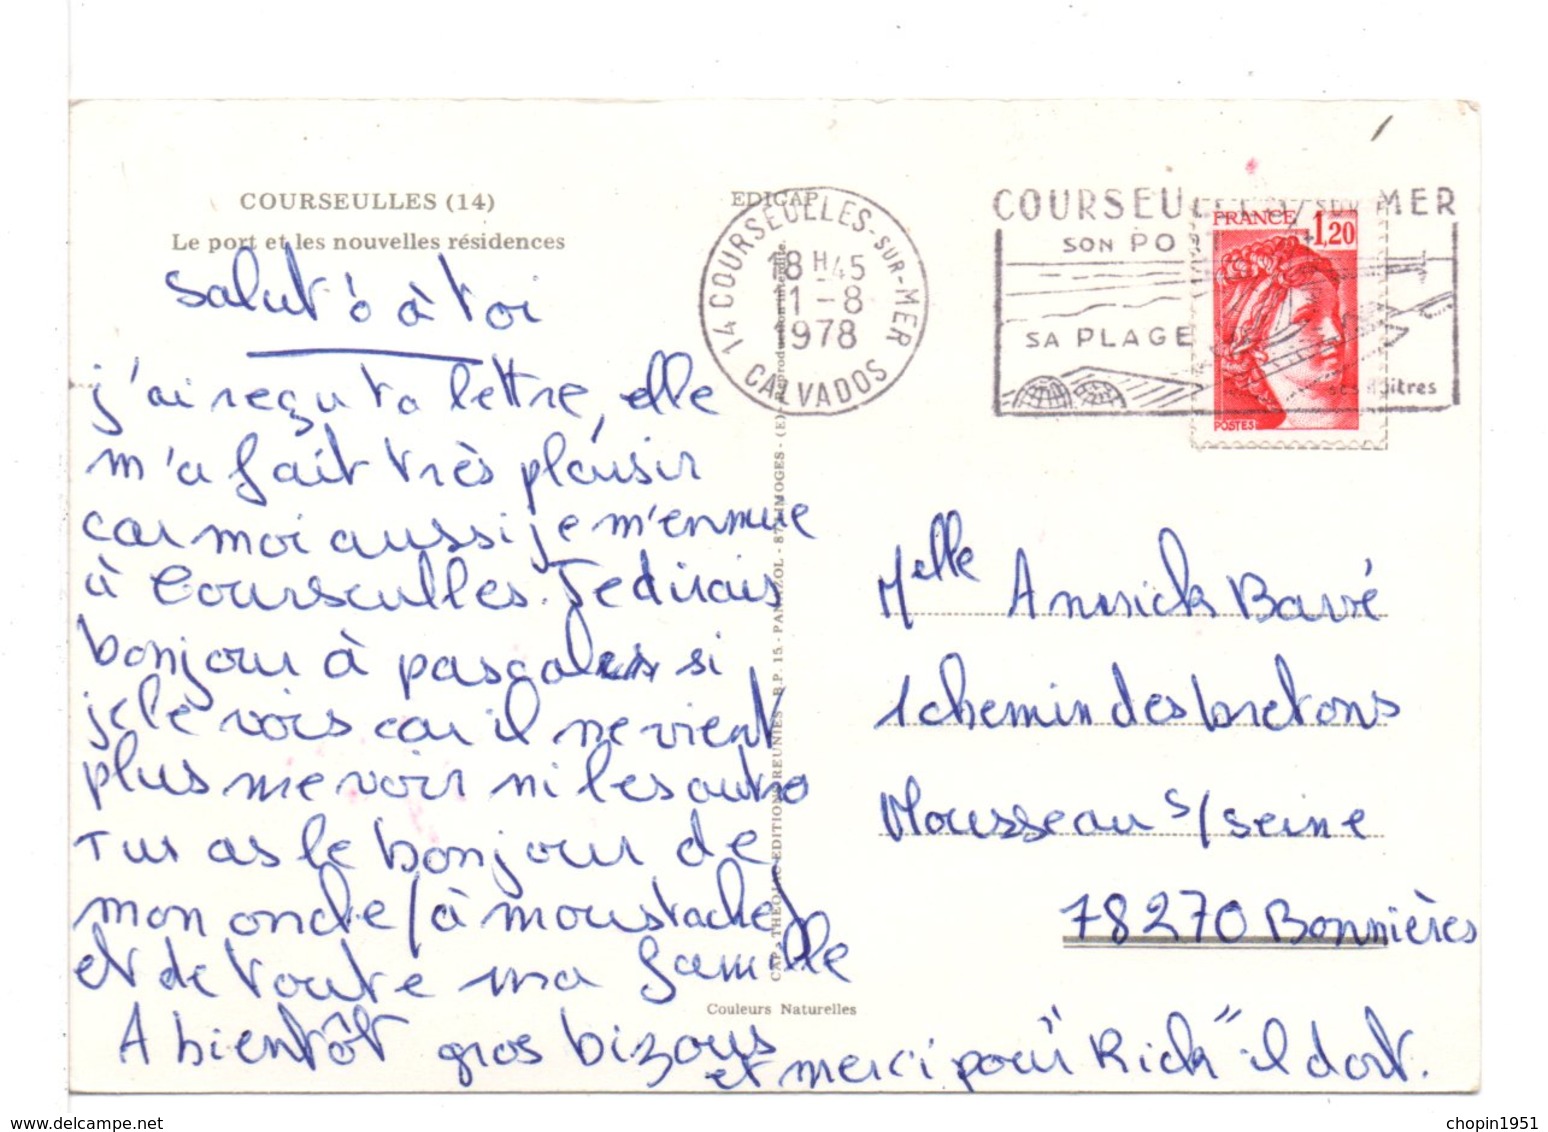 COURSEULLES (14)
Le port et les nouvelles résidences
Salut ô à toi
j'ai reçu ta lettre, elle
m'a fait très plaisir
car moi aussi je m'ennuie
à Courseulles. Je dirais
bonjour à pascal si
je le vois car il ne vient
plus me voir ni les autres
Tu as le bonjour de
mon oncle (à moustache)
et de toute ma famille
A bientôt gros bizous
et merci pour "Rick" il dort.
EDICAP
CAP - THEOJAC EDITIONS REUNIES - B.P. 15 - PANAZOL - 87 LIMOGES - (E) - Reproduction interdite.
Couleurs Naturelles
14 COURSEULLES-SUR-MER
18 H 45
1 - 8
1978
CALVADOS
COURSEULLES/SUR MER
SON PO
SA PLAGE
ses huîtres
FRANCE 1,20
POSTES
Melle Annick Barré
1 chemin des bretons
Mousseau s/seine
78270 Bonnières
www.delcampe.net
chopin1951